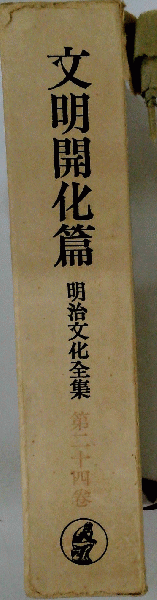 文明開化篇
明治文化全集
第二十四卷